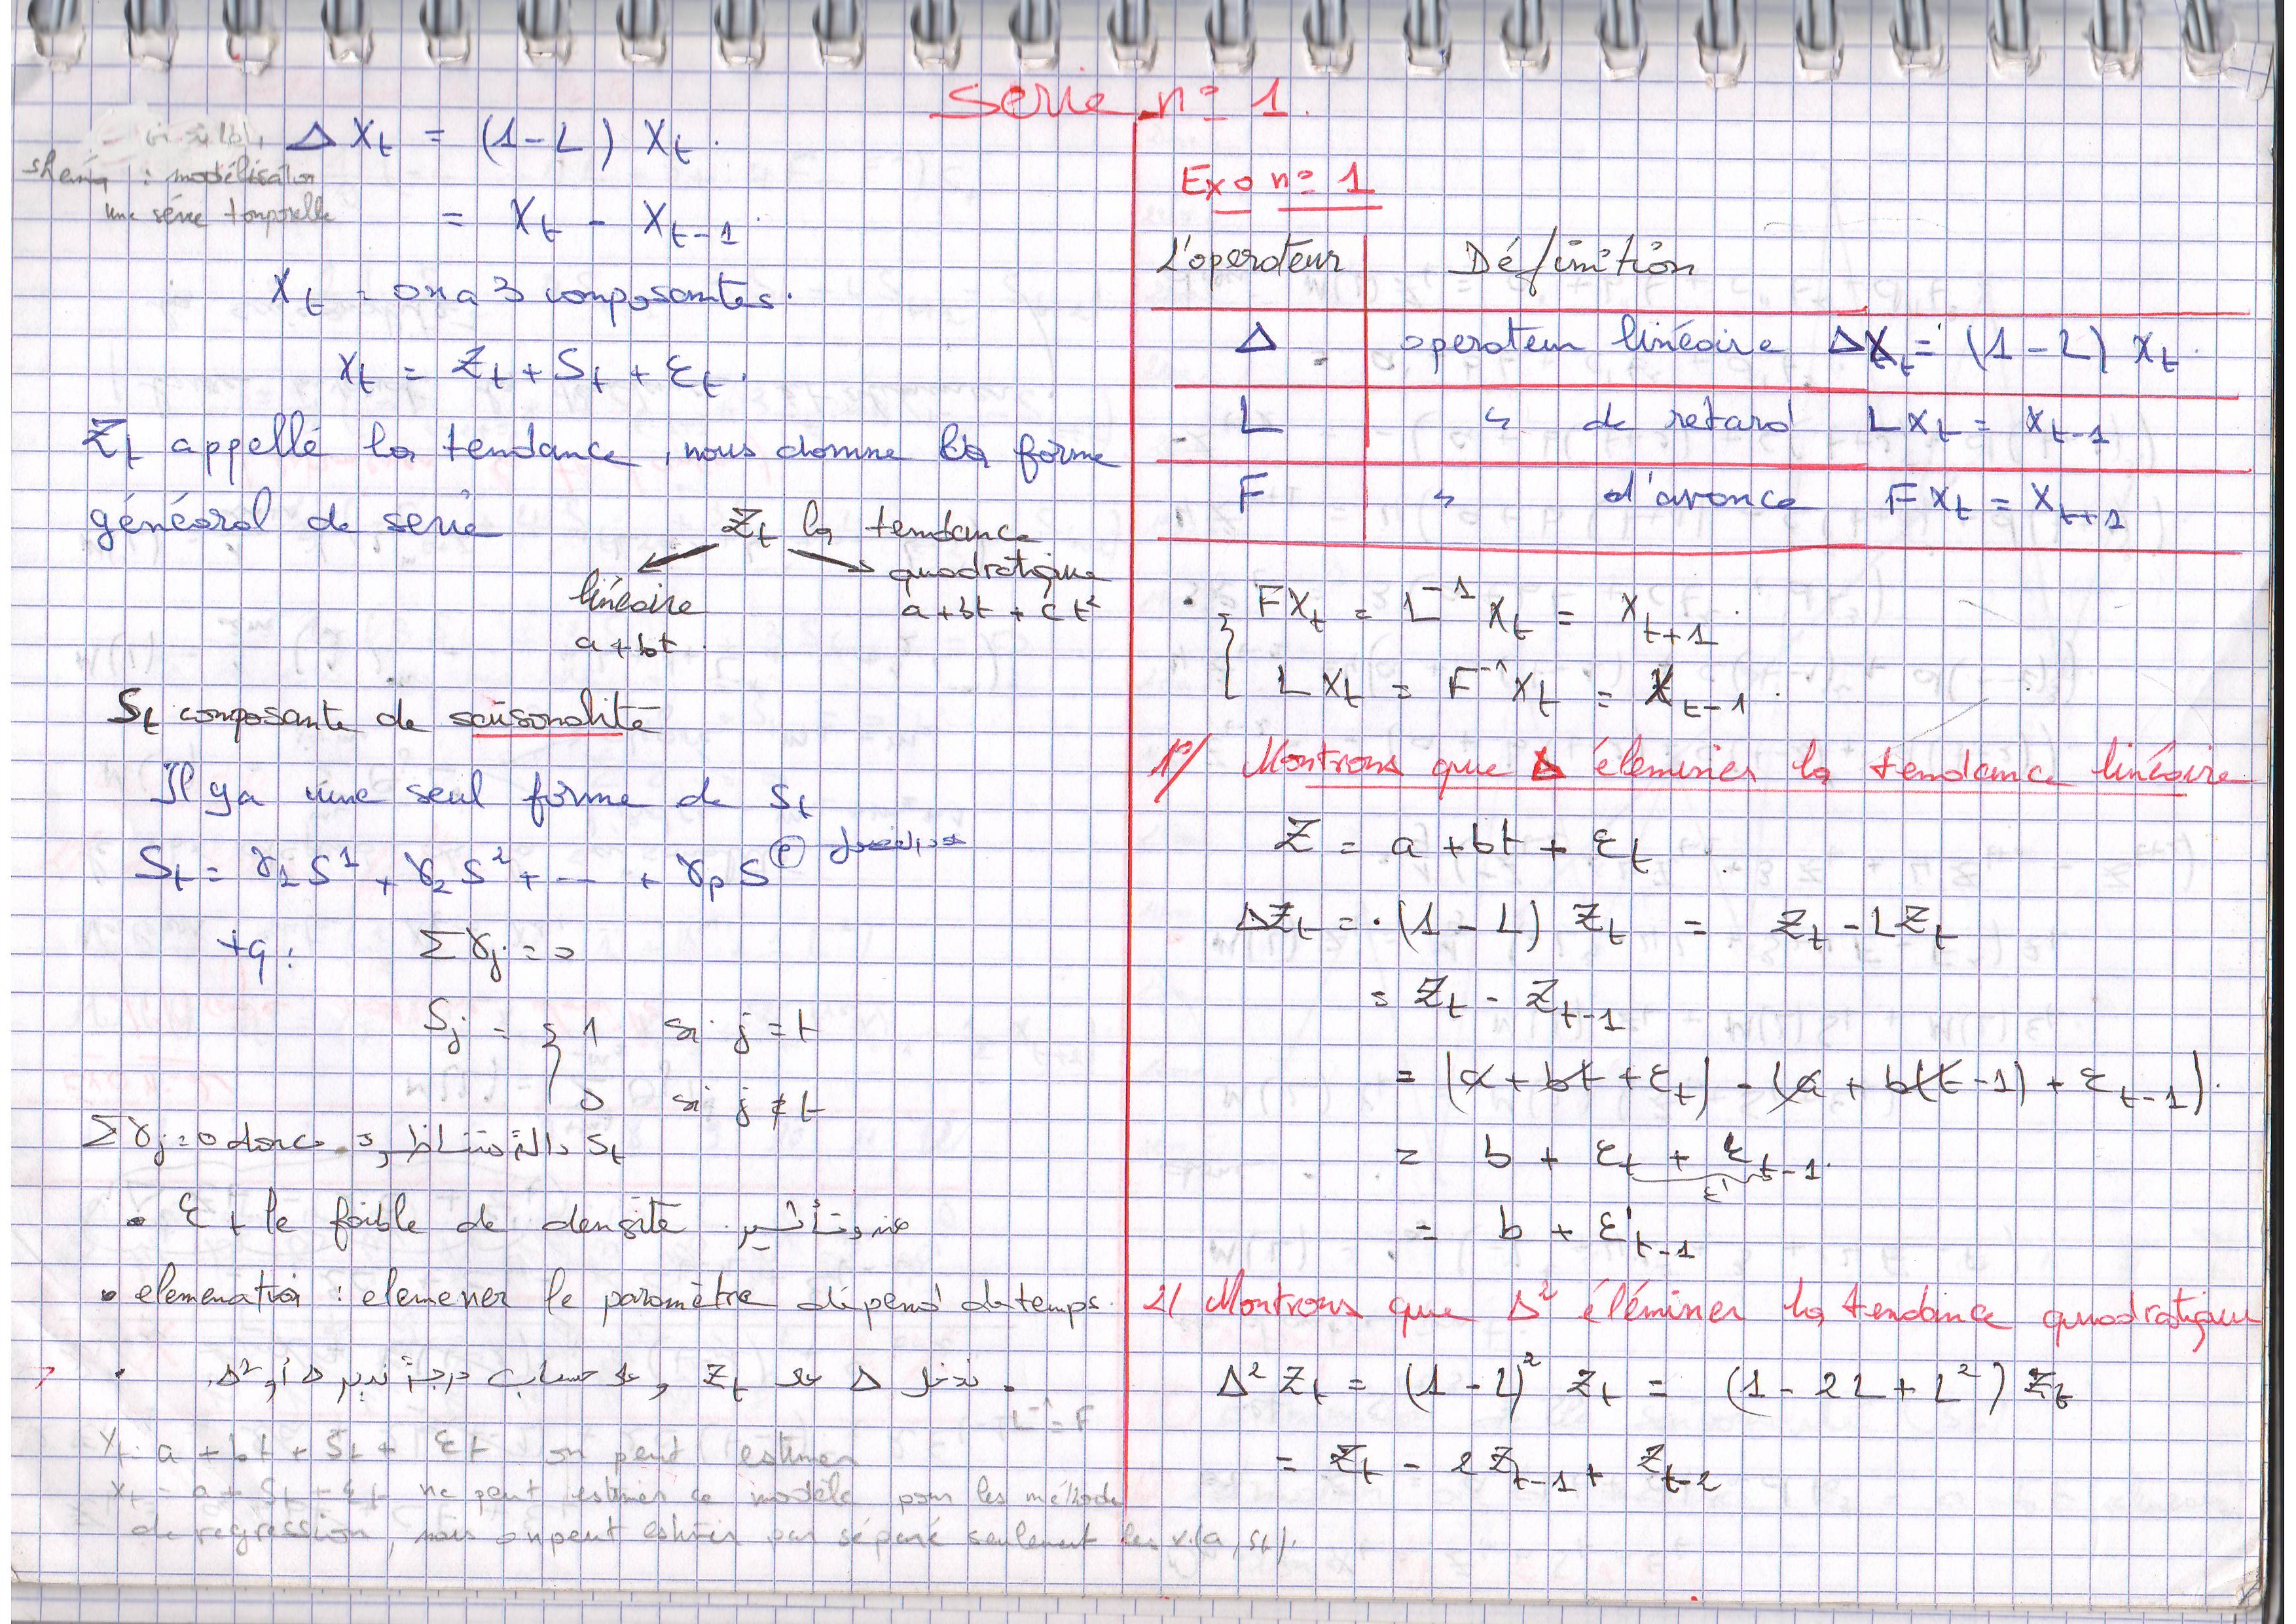 Serie n° 1.
Δ Xt = (1-L) Xt.
: modélisation
une série temporelle
= Xt - Xt-1.
Xt = on a 3 composantes.
Xt = Zt + St + εt.
Zt appellé la tendance, nous donne la forme
général de serie
Zt la tendance
linéaire
a + bt.
quadratique
a + bt + ct²
St composante de saisonalité
Il ya une seul forme de St
St = γ1 S¹ + γ2 S² + --- + γp S^p
tq: Σγj = 0
Sj = { 1 si j = t
0 si j ≠ t
Σγj = 0 donc St
• εt le faible de densité
• elemenation : elemener le paramètre dépend de temps.
L⁻¹ = F
Xt = a + bt + St + εt on peut estimer
Xt = a + St + εt ne peut estimer ce modèle pour les méthode
de regression, mais on peut estimer par séparé seulement les v.(a, St).
Exo n° 1
L'operateur Définition
Δ operateur linéaire ΔXt = (1-L) Xt.
L " de retard LXt = Xt-1
F " d'avance FXt = Xt+1
• { FXt = L⁻¹ Xt = Xt+1.
LXt = F⁻¹ Xt = Xt-1.
1°/ Montrons que Δ éleminer la tendance linéaire
Z = a + bt + εt.
ΔZt = (1 - L) Zt = Zt - LZt
= Zt - Zt-1
= (a + bt + εt) - (a + b(t-1) + εt-1).
= b + εt + εt-1.
ε'
= b + ε't-1
2/ Montrons que Δ² éléminer la tendance quadratique
Δ² Zt = (1-L)² Zt = (1 - 2L + L²) Zt
= Zt - 2Zt-1 + Zt-2